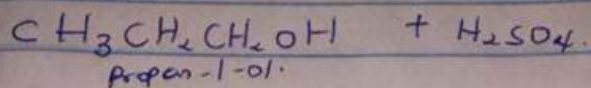 CH₃CH₂CH₂OH + H₂SO₄.
propan-1-ol.